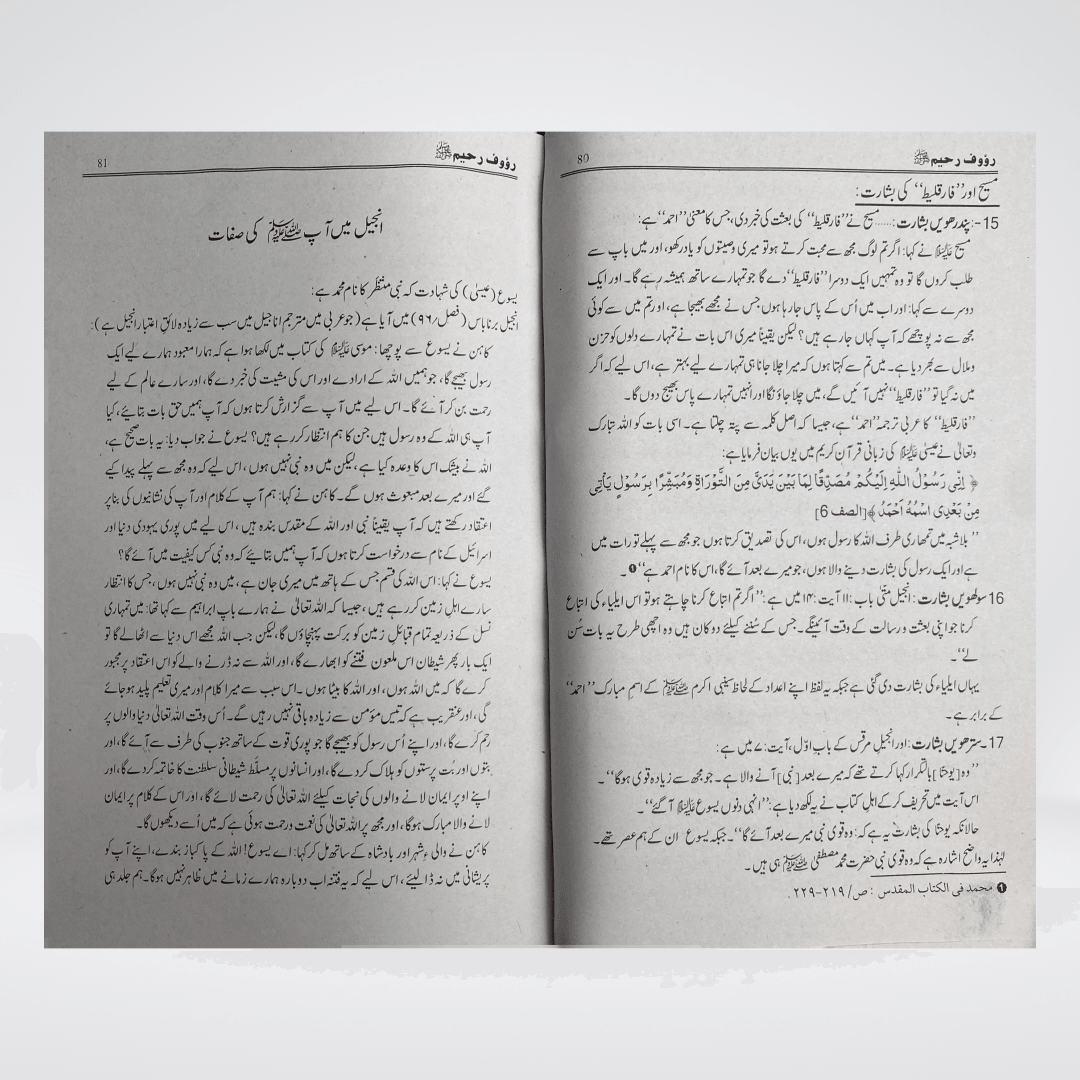 رؤوف رحیم ﷺ 80
مسیح اور ’’فارقلیط‘‘ کی بشارت:
15-: پندرھویں بشارت:......مسیح نے ’’فارقلیط‘‘ کی بعثت کی خبر دی، جس کا معنیٰ ’’احمد‘‘ ہے:
مسیح علیہ السلام نے کہا: اگر تم لوگ مجھ سے محبت کرتے ہو تو میری وصیتوں کو یاد رکھو، اور میں باپ سے
طلب کروں گا تو وہ تمہیں ایک دوسرا ’’فارقلیط‘‘ دے گا جو تمہارے ساتھ ہمیشہ رہے گا۔ اور ایک
دوسرے سے کہا: اور اب میں اُس کے پاس جا رہا ہوں جس نے مجھے بھیجا ہے، اور تم میں سے کوئی
مجھ سے نہ پوچھے کہ آپ کہاں جا رہے ہیں؟ لیکن یقیناً میری اس بات نے تمہارے دلوں کو حزن
و ملال سے بھر دیا ہے۔ میں تم سے کہتا ہوں کہ میرا چلا جانا ہی تمہارے لیے بہتر ہے، اس لیے کہ اگر
میں نہ گیا تو ’’فارقلیط‘‘ نہیں آئیں گے، میں چلا جاؤنگا اور انہیں تمہارے پاس بھیج دوں گا۔
’’فارقلیط‘‘ کا عربی ترجمہ ’’احمد‘‘ ہے، جیسا کہ اصل کلمہ سے پتہ چلتا ہے۔ اسی بات کو اللہ تبارک
وتعالیٰ نے عیسیٰ علیہ السلام کی زبانی قرآن کریم میں یوں بیان فرمایا ہے:
﴿ اِنِّی رَسُوْلُ اللّٰهِ اِلَیْکُمْ مُصَدِّقًا لِمَا بَیْنَ یَدَیَّ مِنَ التَّوْرَاةِ وَمُبَشِّرًا بِرَسُوْلٍ یَاْتِی
مِنْ بَعْدِی اسْمُهُ اَحْمَدُ ﴾ [الصف 6]
’’بلاشبہ میں تمھاری طرف اللہ کا رسول ہوں، اس کی تصدیق کرتا ہوں جو مجھ سے پہلے تورات میں
ہے اور ایک رسول کی بشارت دینے والا ہوں، جو میرے بعد آئے گا، اس کا نام احمد ہے‘‘❶۔
16 سولھویں بشارت: انجیل متّی باب: ۱۱ آیت: ۱۴ میں ہے: ’’اگر تم اتباع کرنا چاہتے ہو تو اس ایلیاء کی اتباع
کرنا جو اپنی بعثت و رسالت کے وقت آئینگے۔ جس کے سُننے کیلئے دو کان ہیں وہ اچھی طرح یہ بات سُن
لے‘‘۔
یہاں ایلیاء کی بشارت دی گئی ہے جبکہ یہ لفظ اپنے اعداد کے لحاظ سے نبی اکرم ﷺ کے اسمِ مبارک ’’احمد‘‘
کے برابر ہے۔
17۔سترھویں بشارت: اور انجیلِ مرقس کے بابِ اوّل، آیت: ۷ میں ہے:
’’وہ [یوحنّا] بالتکرار کہا کرتے تھے کہ میرے بعد [نبی] آنے والا ہے۔ جو مجھ سے زیادہ قوی ہوگا‘‘۔
اس آیت میں تحریف کرکے اہلِ کتاب نے یہ لکھ دیا ہے: ’’انہی دنوں یسوع علیہ السلام آ گئے‘‘۔
حالانکہ یوحنّا کی بشارت یہ ہے کہ: وہ قوی نبی میرے بعد آئے گا‘‘۔ جبکہ یسوع ان کے ہم عصر تھے۔
لہٰذا یہ واضح اشارہ ہے کہ وہ قوی نبی حضرت محمد مصطفیٰ ﷺ ہی ہیں۔
❶ محمد فی الکتاب المقدس : ص/ ۲۱۹-۲۲۹.
رؤوف رحیم ﷺ 81
انجیل میں آپ ﷺ کی صفات
یسوع (عیسیٰ) کی شہادت کہ نبی منتظَر کا نام محمد ہے:
انجیل برناباس (فصل/۹۶) میں آیا ہے (جو عربی میں مترجم اناجیل میں سب سے زیادہ لائقِ اعتبار انجیل ہے):
کاہن نے یسوع سے پوچھا: موسیٰ علیہ السلام کی کتاب میں لکھا ہوا ہے کہ ہمارا معبود ہمارے لیے ایک
رسول بھیجے گا، جو ہمیں اللہ کے ارادے اور اس کی مشیت کی خبر دے گا، اور سارے عالم کے لیے
رحمت بن کر آئے گا۔ اس لیے میں آپ سے گزارش کرتا ہوں کہ آپ ہمیں حق بات بتائیے، کیا
آپ ہی اللہ کے وہ رسول ہیں جن کا ہم انتظار کر رہے ہیں؟ یسوع نے جواب دیا: یہ بات صحیح ہے،
اللہ نے بیشک اس کا وعدہ کیا ہے، لیکن میں وہ نبی نہیں ہوں، اس لیے کہ وہ مجھ سے پہلے پیدا کیے
گئے اور میرے بعد مبعوث ہوں گے۔ کاہن نے کہا: ہم آپ کے کلام اور آپ کی نشانیوں کی بنا پر
اعتقاد رکھتے ہیں کہ آپ یقیناً نبی اور اللہ کے مقدس بندہ ہیں، اس لیے میں پوری یہودی دنیا اور
اسرائیل کے نام سے درخواست کرتا ہوں کہ آپ ہمیں بتائیے کہ وہ نبی کس کیفیت میں آئے گا؟
یسوع نے کہا: اس اللہ کی قسم جس کے ہاتھ میں میری جان ہے، میں وہ نبی نہیں ہوں، جس کا انتظار
سارے اہلِ زمین کر رہے ہیں، جیسا کہ اللہ تعالیٰ نے ہمارے باپ ابراہیم سے کہا تھا: میں تمہاری
نسل کے ذریعہ تمام قبائلِ زمین کو برکت پہنچاؤں گا، لیکن جب اللہ مجھے اس دنیا سے اٹھا لے گا تو
ایک بار پھر شیطان اس ملعون فتنے کو ابھارے گا، اور اللہ سے نہ ڈرنے والے کو اس اعتقاد پر مجبور
کرے گا کہ میں اللہ ہوں، اور اللہ کا بیٹا ہوں۔ اس سبب سے میرا کلام اور میری تعلیم پلید ہو جائے
گی، اور عنقریب ہے کہ تیس مؤمن سے زیادہ باقی نہیں رہیں گے۔ اُس وقت اللہ تعالیٰ دنیا والوں پر
رحم کرے گا، اور اپنے اُس رسول کو بھیجے گا جو پوری قوت کے ساتھ جنوب کی طرف سے آئے گا، اور
بتوں اور بُت پرستوں کو ہلاک کر دے گا، اور انسانوں پر مسلّط شیطانی سلطنت کا خاتمہ کر دے گا، اور
اپنے اوپر ایمان لانے والوں کی نجات کیلئے اللہ تعالیٰ کی رحمت لائے گا، اور اس کے کلام پر ایمان
لانے والا مبارک ہوگا، اور مجھ پر اللہ تعالیٰ کی نعمت ورحمت ہوئی ہے کہ میں اُسے دیکھوں گا۔
کاہن نے والیٔ شہر اور بادشاہ کے ساتھ مل کر کہا: اے یسوع! اللہ کے پاکباز بندے، اپنے آپ کو
پریشانی میں نہ ڈالیئے، اس لیے کہ یہ فتنہ اب دوبارہ ہمارے زمانے میں ظاہر نہیں ہوگا۔ ہم جلد ہی